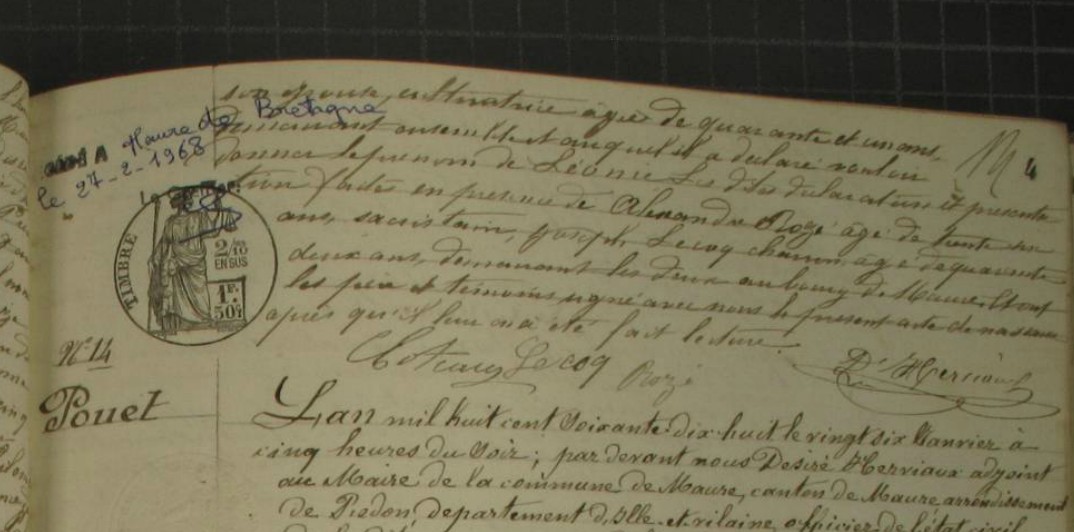 son épouse, cultivatrice âgée de quarante et un ans
demeurant ensemble et auquel il a déclaré vouloir
donner le prénom de Léonie Les dites déclaration et présenta
tion faites en présence de Alexandre Rozé âgé de trente un
ans, sacristain, Joseph Lecoq âgé de quarante
deux ans, demeurant les deux au bourg de Maure. Et ont
les père et témoins signé avec nous le présent acte de naissance
après qu'il leur en a été fait lecture.
Lecoq Rozé D. Hervioux
4
A Maure de Bretagne
le 27-2-1968
TIMBRE
2/10
EN SUS
1F.
50c
N° 14
Pouet
L'an mil huit cent soixante-dix-huit le vingt six Janvier à
cinq heures du soir; par devant nous Désiré Hervioux adjoint
au Maire de la commune de Maure, canton de Maure arrondissement
de Redon département d'Ille-et-vilaine officier de l'état